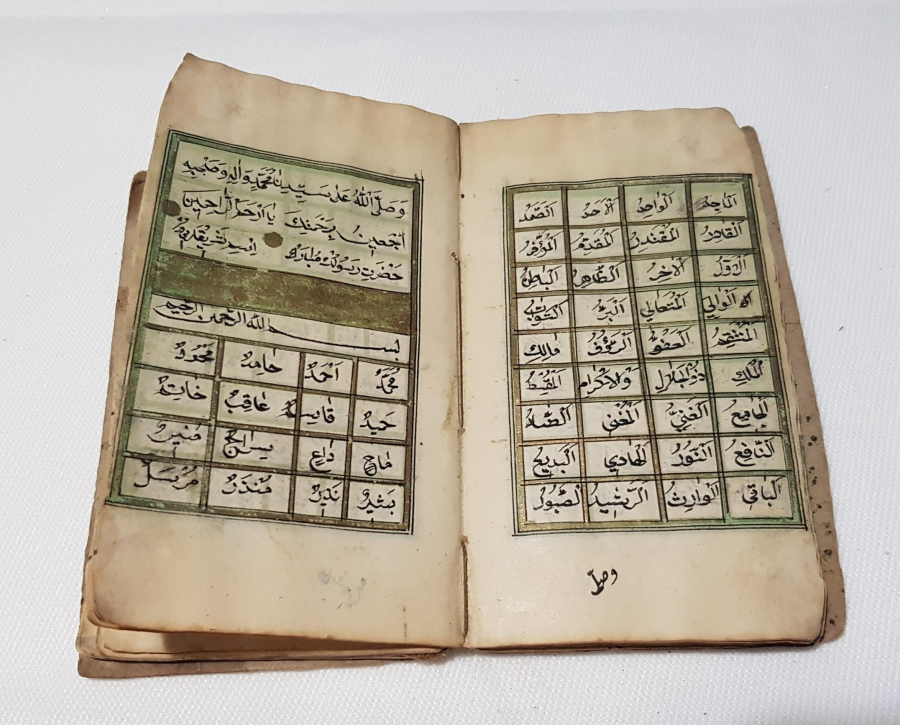 الماجد الواحد الاحد الصمد
القادر المقتدر المقدم المؤخر
الاول الاخر الظاهر الباطن
الوالي المتعالي البر التواب
المنتقم العفو الرؤف مالك
الملك ذوالجلال والاكرام المقسط
الجامع الغني المغني الضار
النافع النور الهادي البديع
الباقي الوارث الرشيد الصبور
وصلى
وصلى الله على سيدنا محمد واله وصحبه
اجمعين برحمتك يا ارحم الراحمين
حضرت رسولك مبارك اسم شريفلريدر
بسم الله الرحمن الرحيم
محمد احمد حامد محمود
حيد قاسم عاقب خاتم
ماح داع سراج منير
بشير نذير منذر مرسل